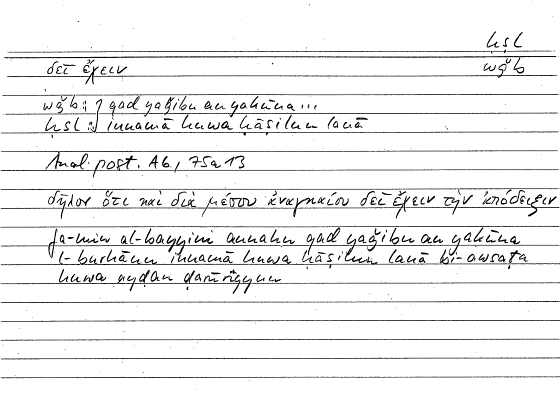 ḥṣl
δεῖ ἔχειν
wǧb
wǧb: } qad yaǧibu an yakūna...
ḥṣl: } innamā huwa ḥāṣilun lanā
Anal. post. A6, 75a13
δῆλον ὅτι καὶ διὰ μέσου ἀναγκαίου δεῖ ἔχειν τὴν ἀπόδειξιν
fa-min al-bayyini annahu qad yaǧibu an yakūna
l-burhānu innamā huwa ḥāṣilun lanā bi-awsaṭa
huwa ayḍan ḍarūriyyun